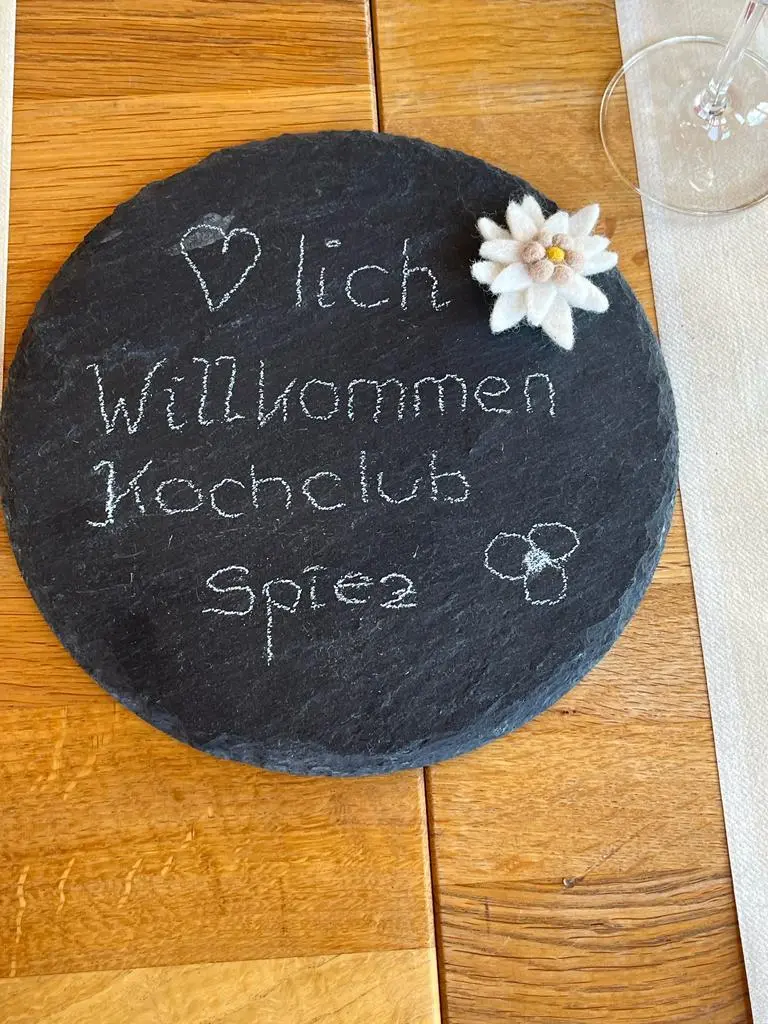 ♡lich
Willkommen
Kochclub
Spiez